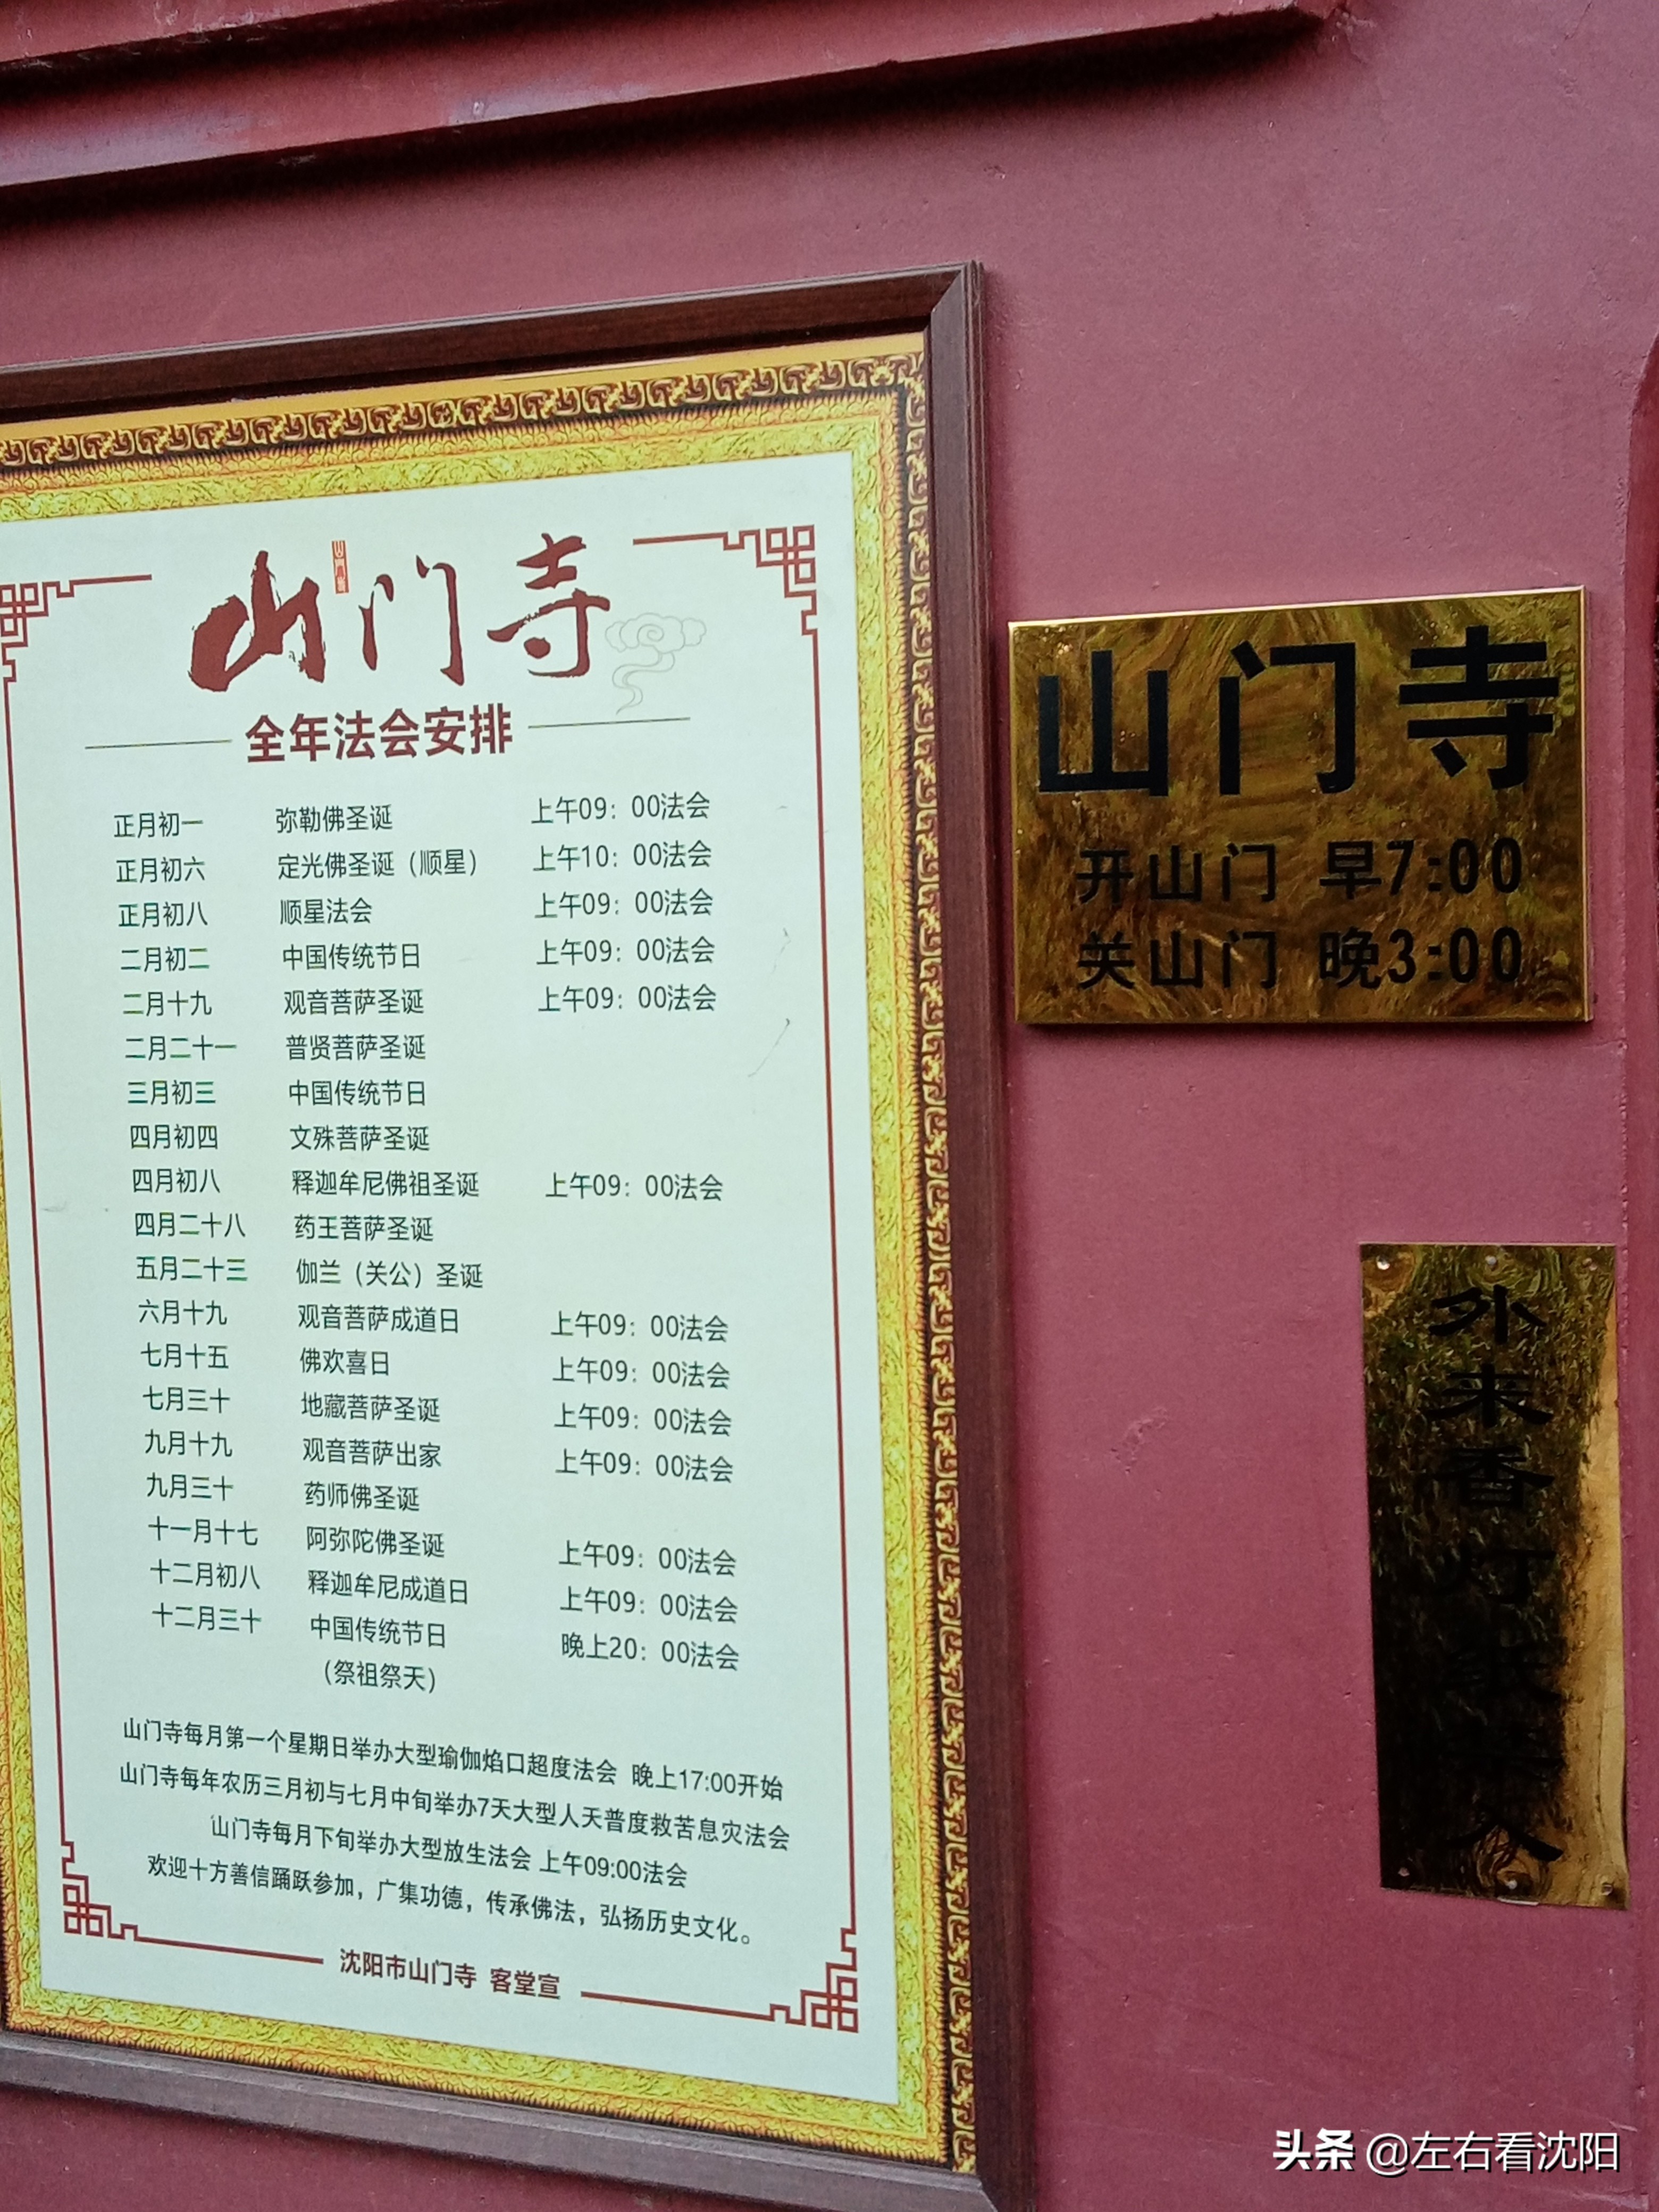 山门寺
山门寺
全年法会安排
正月初一 弥勒佛圣诞 上午09：00法会
正月初六 定光佛圣诞（顺星） 上午10：00法会
正月初八 顺星法会 上午09：00法会
二月初二 中国传统节日 上午09：00法会
二月十九 观音菩萨圣诞 上午09：00法会
二月二十一 普贤菩萨圣诞
三月初三 中国传统节日
四月初四 文殊菩萨圣诞
四月初八 释迦牟尼佛祖圣诞 上午09：00法会
四月二十八 药王菩萨圣诞
五月二十三 伽兰（关公）圣诞
六月十九 观音菩萨成道日 上午09：00法会
七月十五 佛欢喜日 上午09：00法会
七月三十 地藏菩萨圣诞 上午09：00法会
九月十九 观音菩萨出家 上午09：00法会
九月三十 药师佛圣诞
十一月十七 阿弥陀佛圣诞 上午09：00法会
十二月初八 释迦牟尼成道日 上午09：00法会
十二月三十 中国传统节日 晚上20：00法会
（祭祖祭天）
山门寺每月第一个星期日举办大型瑜伽焰口超度法会 晚上17:00开始
山门寺每年农历三月初与七月中旬举办7天大型人天普度救苦息灾法会
山门寺每月下旬举办大型放生法会 上午09:00法会
欢迎十方善信踊跃参加，广集功德，传承佛法，弘扬历史文化。
沈阳市山门寺 客堂宣
山门寺
开山门 早7:00
关山门 晚3:00
外来香灯
入
头条 @左右看沈阳